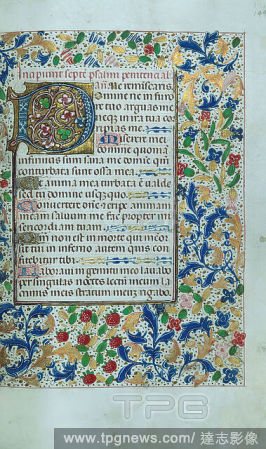 Incipiunt septē psalmi penitenciał
Ne reminiscaris
Domine ne in furo
re tuo arguas me
neqz in ira tua co
ripias me. Miserere mei
domine quoniā
infirmus sum sana me domine qm̄
conturbata sunt ossa mea.
Et anima mea turbata ē valde
sed tu domine usquequo.
Convertere dn̄e et eripe animā
meam saluum me fac propter mi
sericordiam tuam.
Quoniam non est in morte qui memor
sit tui in inferno autem quis con
fitebitur tibi.
Laboraui in gemitu meo lauabo
per singulas noctes lectū meum la
crimis meis stratum meum rigabo.
TPG
www.tpgnews.com/ 達志影像